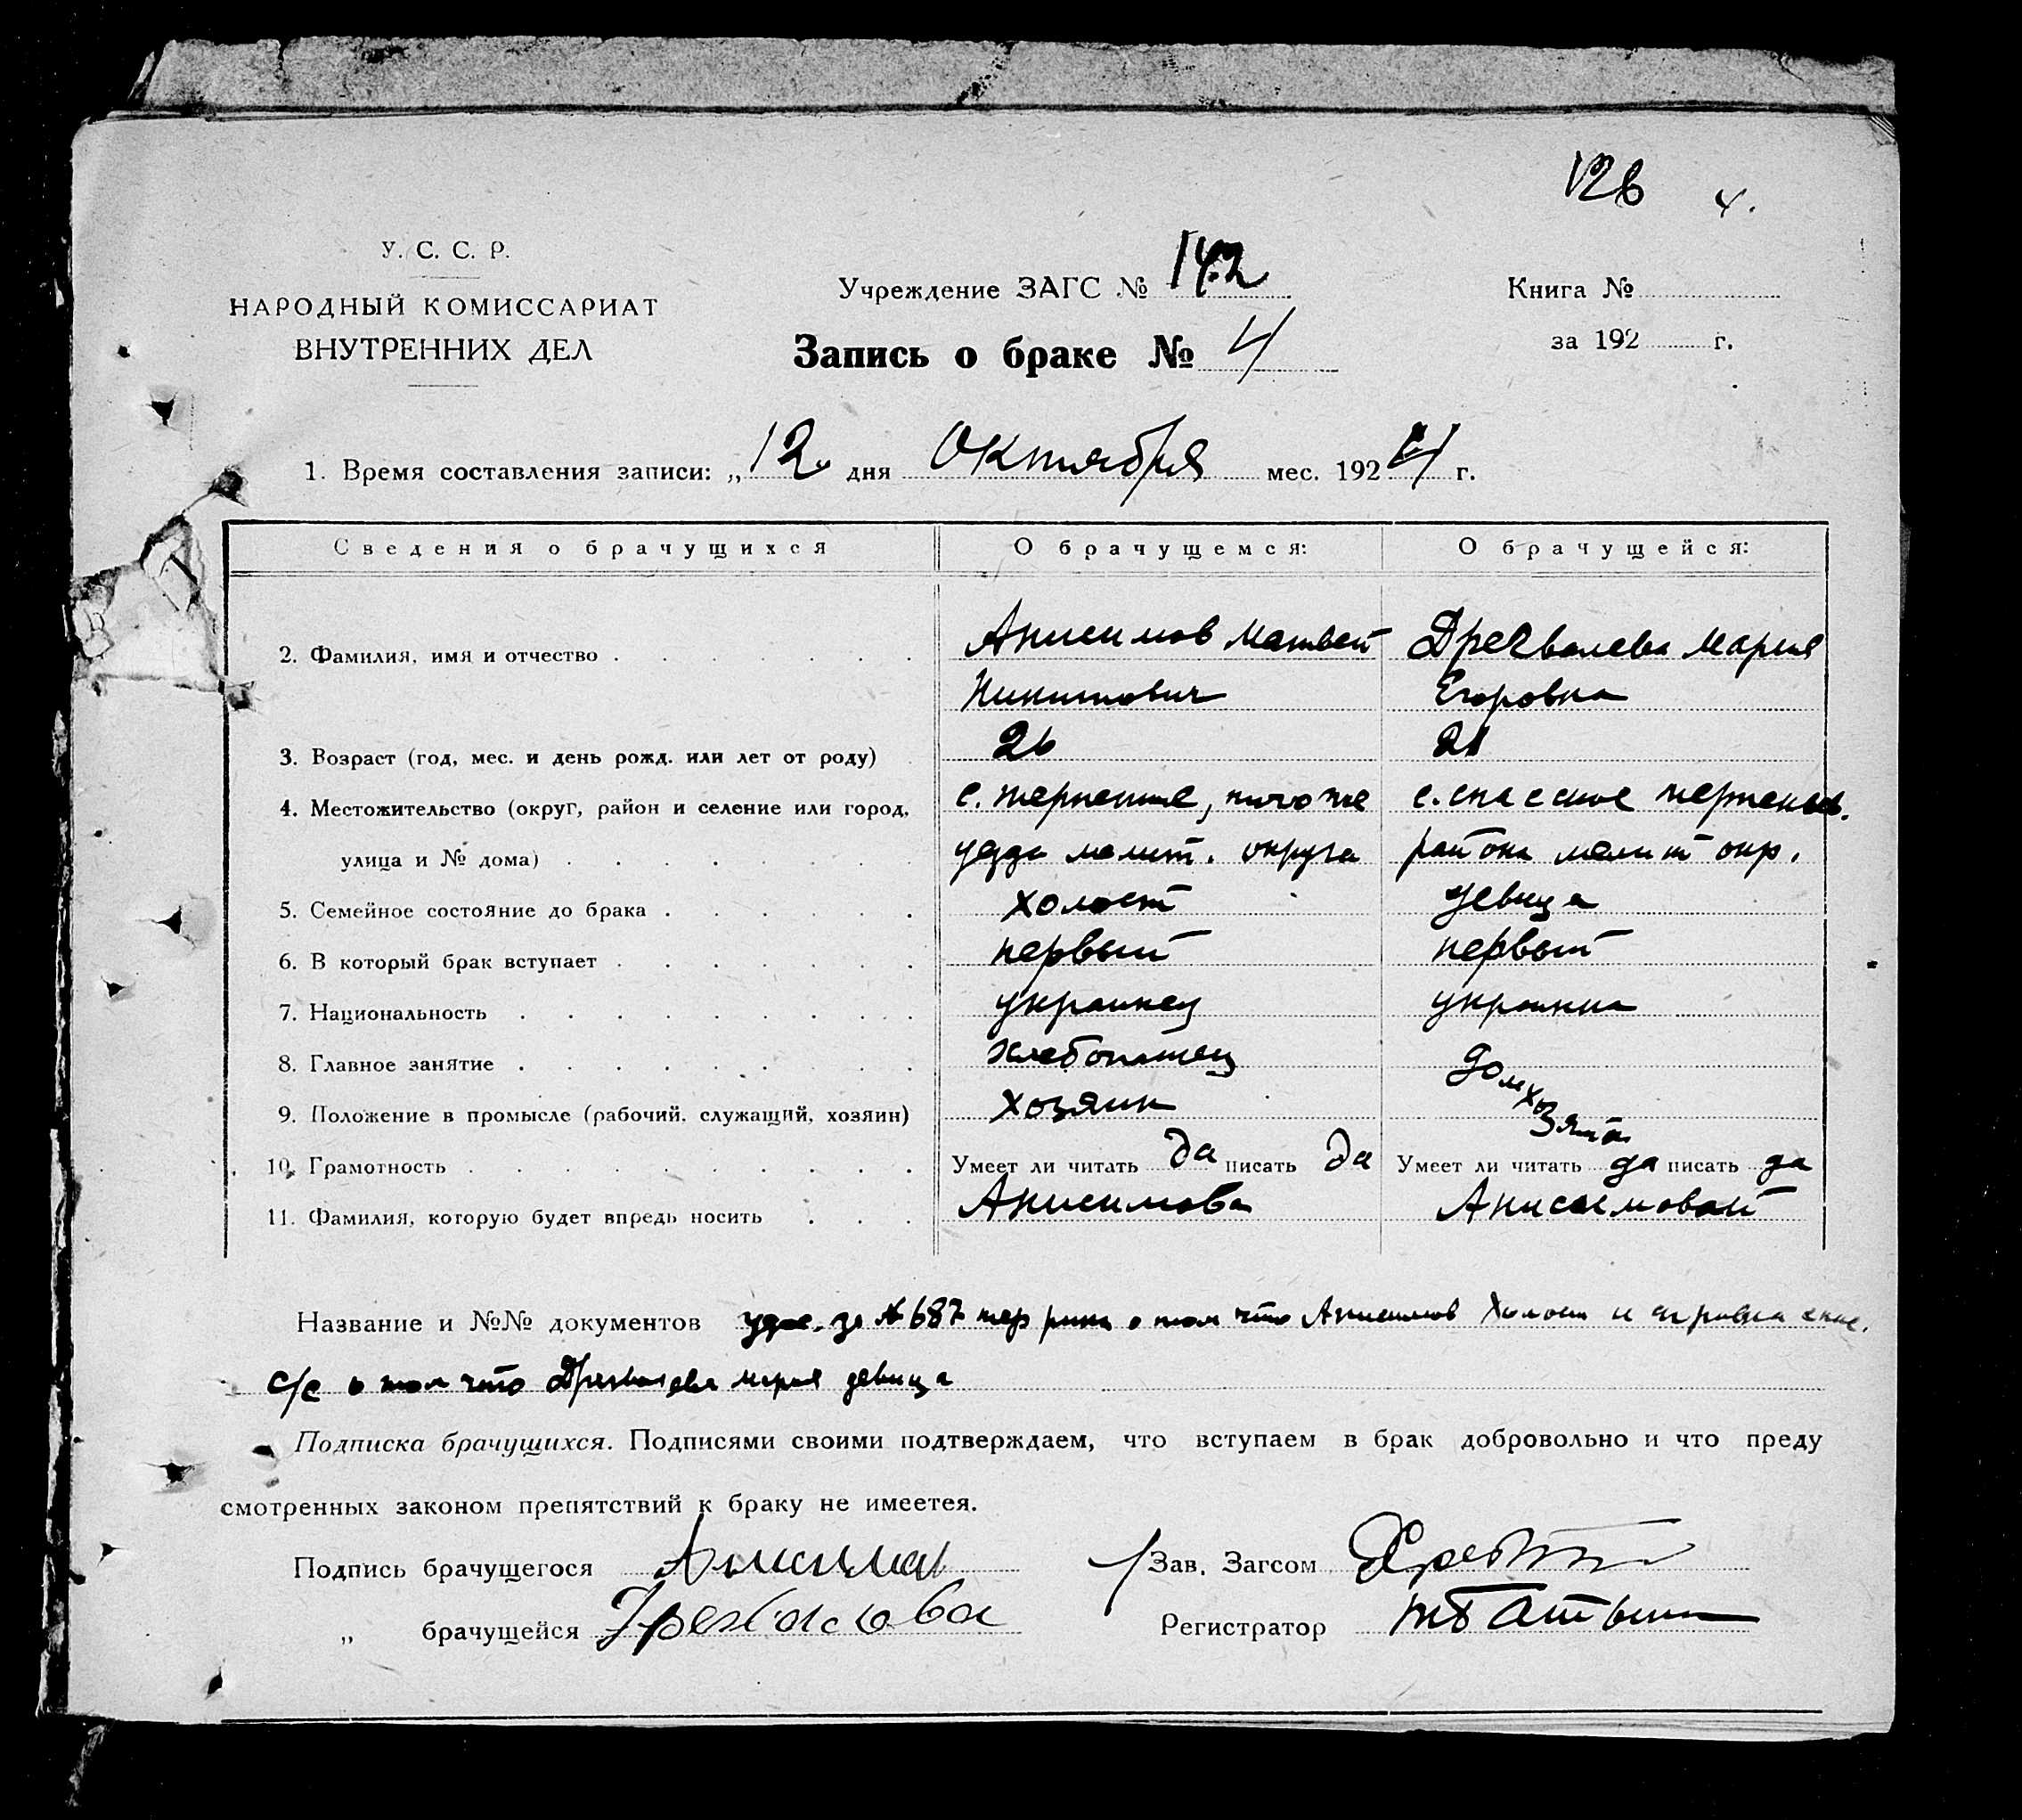 126 4.
У. С. С. Р.
НАРОДНЫЙ КОМИССАРИАТ
ВНУТРЕННИХ ДЕЛ
Учреждение ЗАГС № 142
Книга №
Запись о браке № 4
за 192 г.
1. Время составления записи: „ 12 дня Октября мес. 1924 г.
Сведения о брачущихся О брачущемся: О брачущейся:
2. Фамилия, имя и отчество Анисимов Матвей Дрехвалева Мария
Никитович Егоровна
3. Возраст (год, мес. и день рожд. или лет от роду) 26 21
4. Местожительство (округ, район и селение или город, с. терпение, того же с. спасское терпеньев.
улица и № дома) мелит. округа района мелит окр.
5. Семейное состояние до брака холост девица
6. В который брак вступает первый первый
7. Национальность украинец украинка
8. Главное занятие хлебопашец домхозяйка
9. Положение в промысле (рабочий, служащий, хозяин) хозяин
10. Грамотность Умеет ли читать да писать да Умеет ли читать да писать да
11. Фамилия, которую будет впредь носить Анисимова Анисимовой
Название и №№ документов за № 687 тер рика о том что Анисимов холост и
с/с о том что мария девица
Подписка брачущихся. Подписями своими подтверждаем, что вступаем в брак добровольно и что преду
смотренных законом препятствий к браку не имеетея.
Подпись брачущегося Анисимов Зав. Загсом
„ брачущейся Регистратор